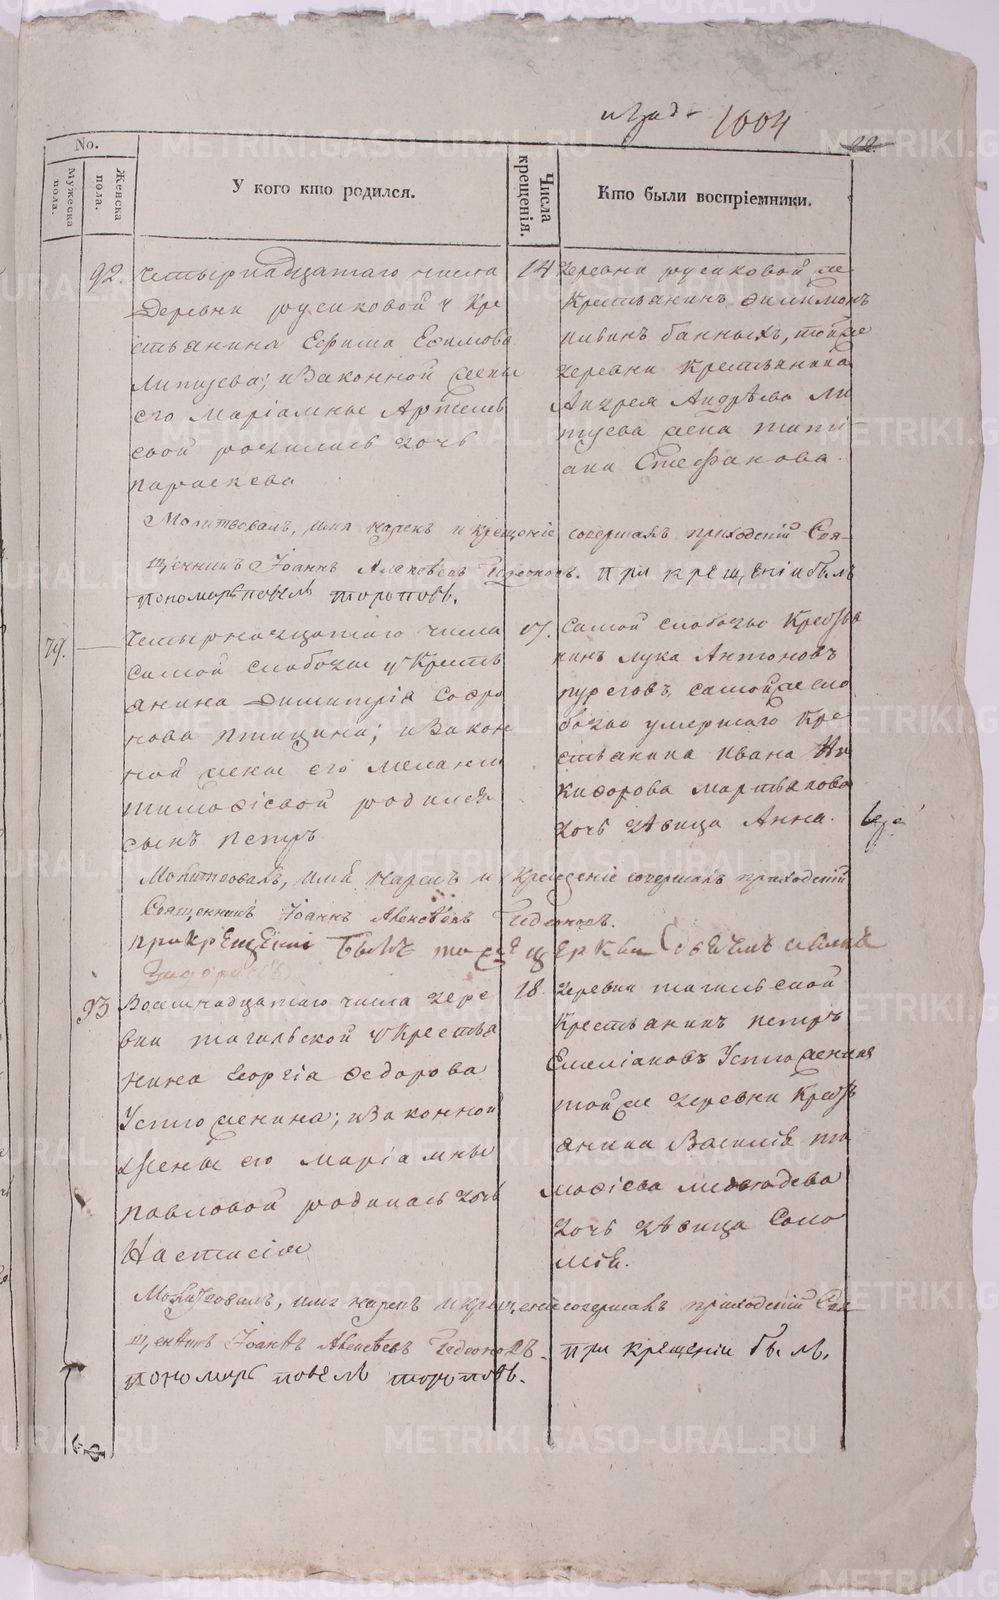 1004
22.
No.
Мужеска пола.
Женска пола.
У кого кто родился.
Числа крещенія.
Кто были воспріемники.
92. Четырнадцатаго числа
Деревни русиковой у Кре
стьянина Ефима Ефимова
Липусева; изаконной жены
его Маріамны Артемь
евой родилась дочь
параскева
14 деревни русиковой же
Крестьянинъ филимонъ
банныхъ, тойже
деревни Крестьянина
Андрея Андрѣева Ли
пусева жена тати
ана Стефанова.
Молитвовалъ, имя нарекъ и крещеніе совершалъ приходскій Свя-
щенникъ Іоаннъ Алексѣевъ Гедеоновъ. при крещеніи былъ
пономарь павелъ топоповъ.
74. Четырнадцатаго числа
самой слободы у Кресть
янина Димитрія Софро
нова птицина; изакон
ной жены его мелании
тимофіевой родился
сынъ петръ
17. самой слободы Крестья
нинъ лука Антоновъ
пурєговъ, самой же сло
боды умершаго Кре
стьянина ивана Ни
кифорова мартьянова
дочь дѣвица Анна.
Молитвовалъ, имя нарекъ и крещеніе совершалъ приходскій
Священникъ Іоаннъ Алексѣевъ Гедеоновъ.
при крещеніи былъ тоже церкви
93 Восемнадцатаго числа дере
вни тагильской у Крестья
нина Георгія федорова
Устюженина; изаконной
жены его маріамны
павловой родилась дочь
Настасія
18. деревни тагильской
Крестьянинъ петръ
Емеліановъ Устюженинъ
той же деревни Кресть
янина Василія ти
мофіева медвѣдева
дочь дѣвица Соло
мія.
Молитвовалъ, имя нарекъ и крещеніе совершалъ приходскій Свя
щенникъ Іоаннъ Алексѣевъ Гедеоновъ. при крещеніи былъ,
пономарь павелъ топоповъ.
METRIKI.GASO-URAL.RU